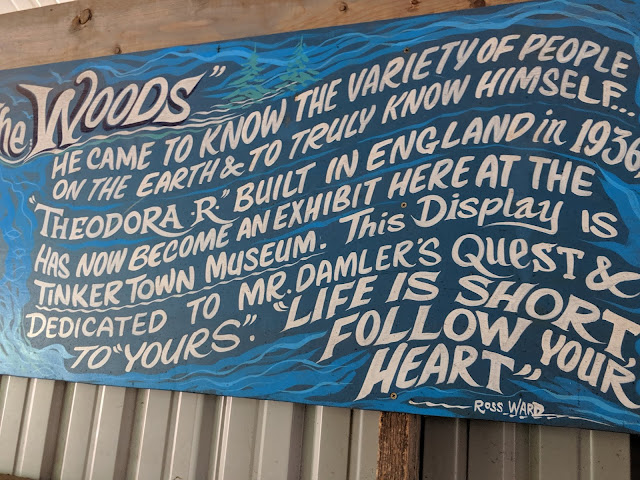 he Woods"
HE CAME TO KNOW THE VARIETY OF PEOPLE
ON THE EARTH & TO TRULY KNOW HIMSELF...
"THEODORA R." BUILT IN ENGLAND in 1936,
HAS NOW BECOME AN EXHIBIT HERE AT THE
TINKERTOWN MUSEUM. This Display IS
DEDICATED TO MR. DAMLER'S QUEST &
TO "YOURS". "LIFE IS SHORT,
FOLLOW YOUR
HEART",
ROSS WARD